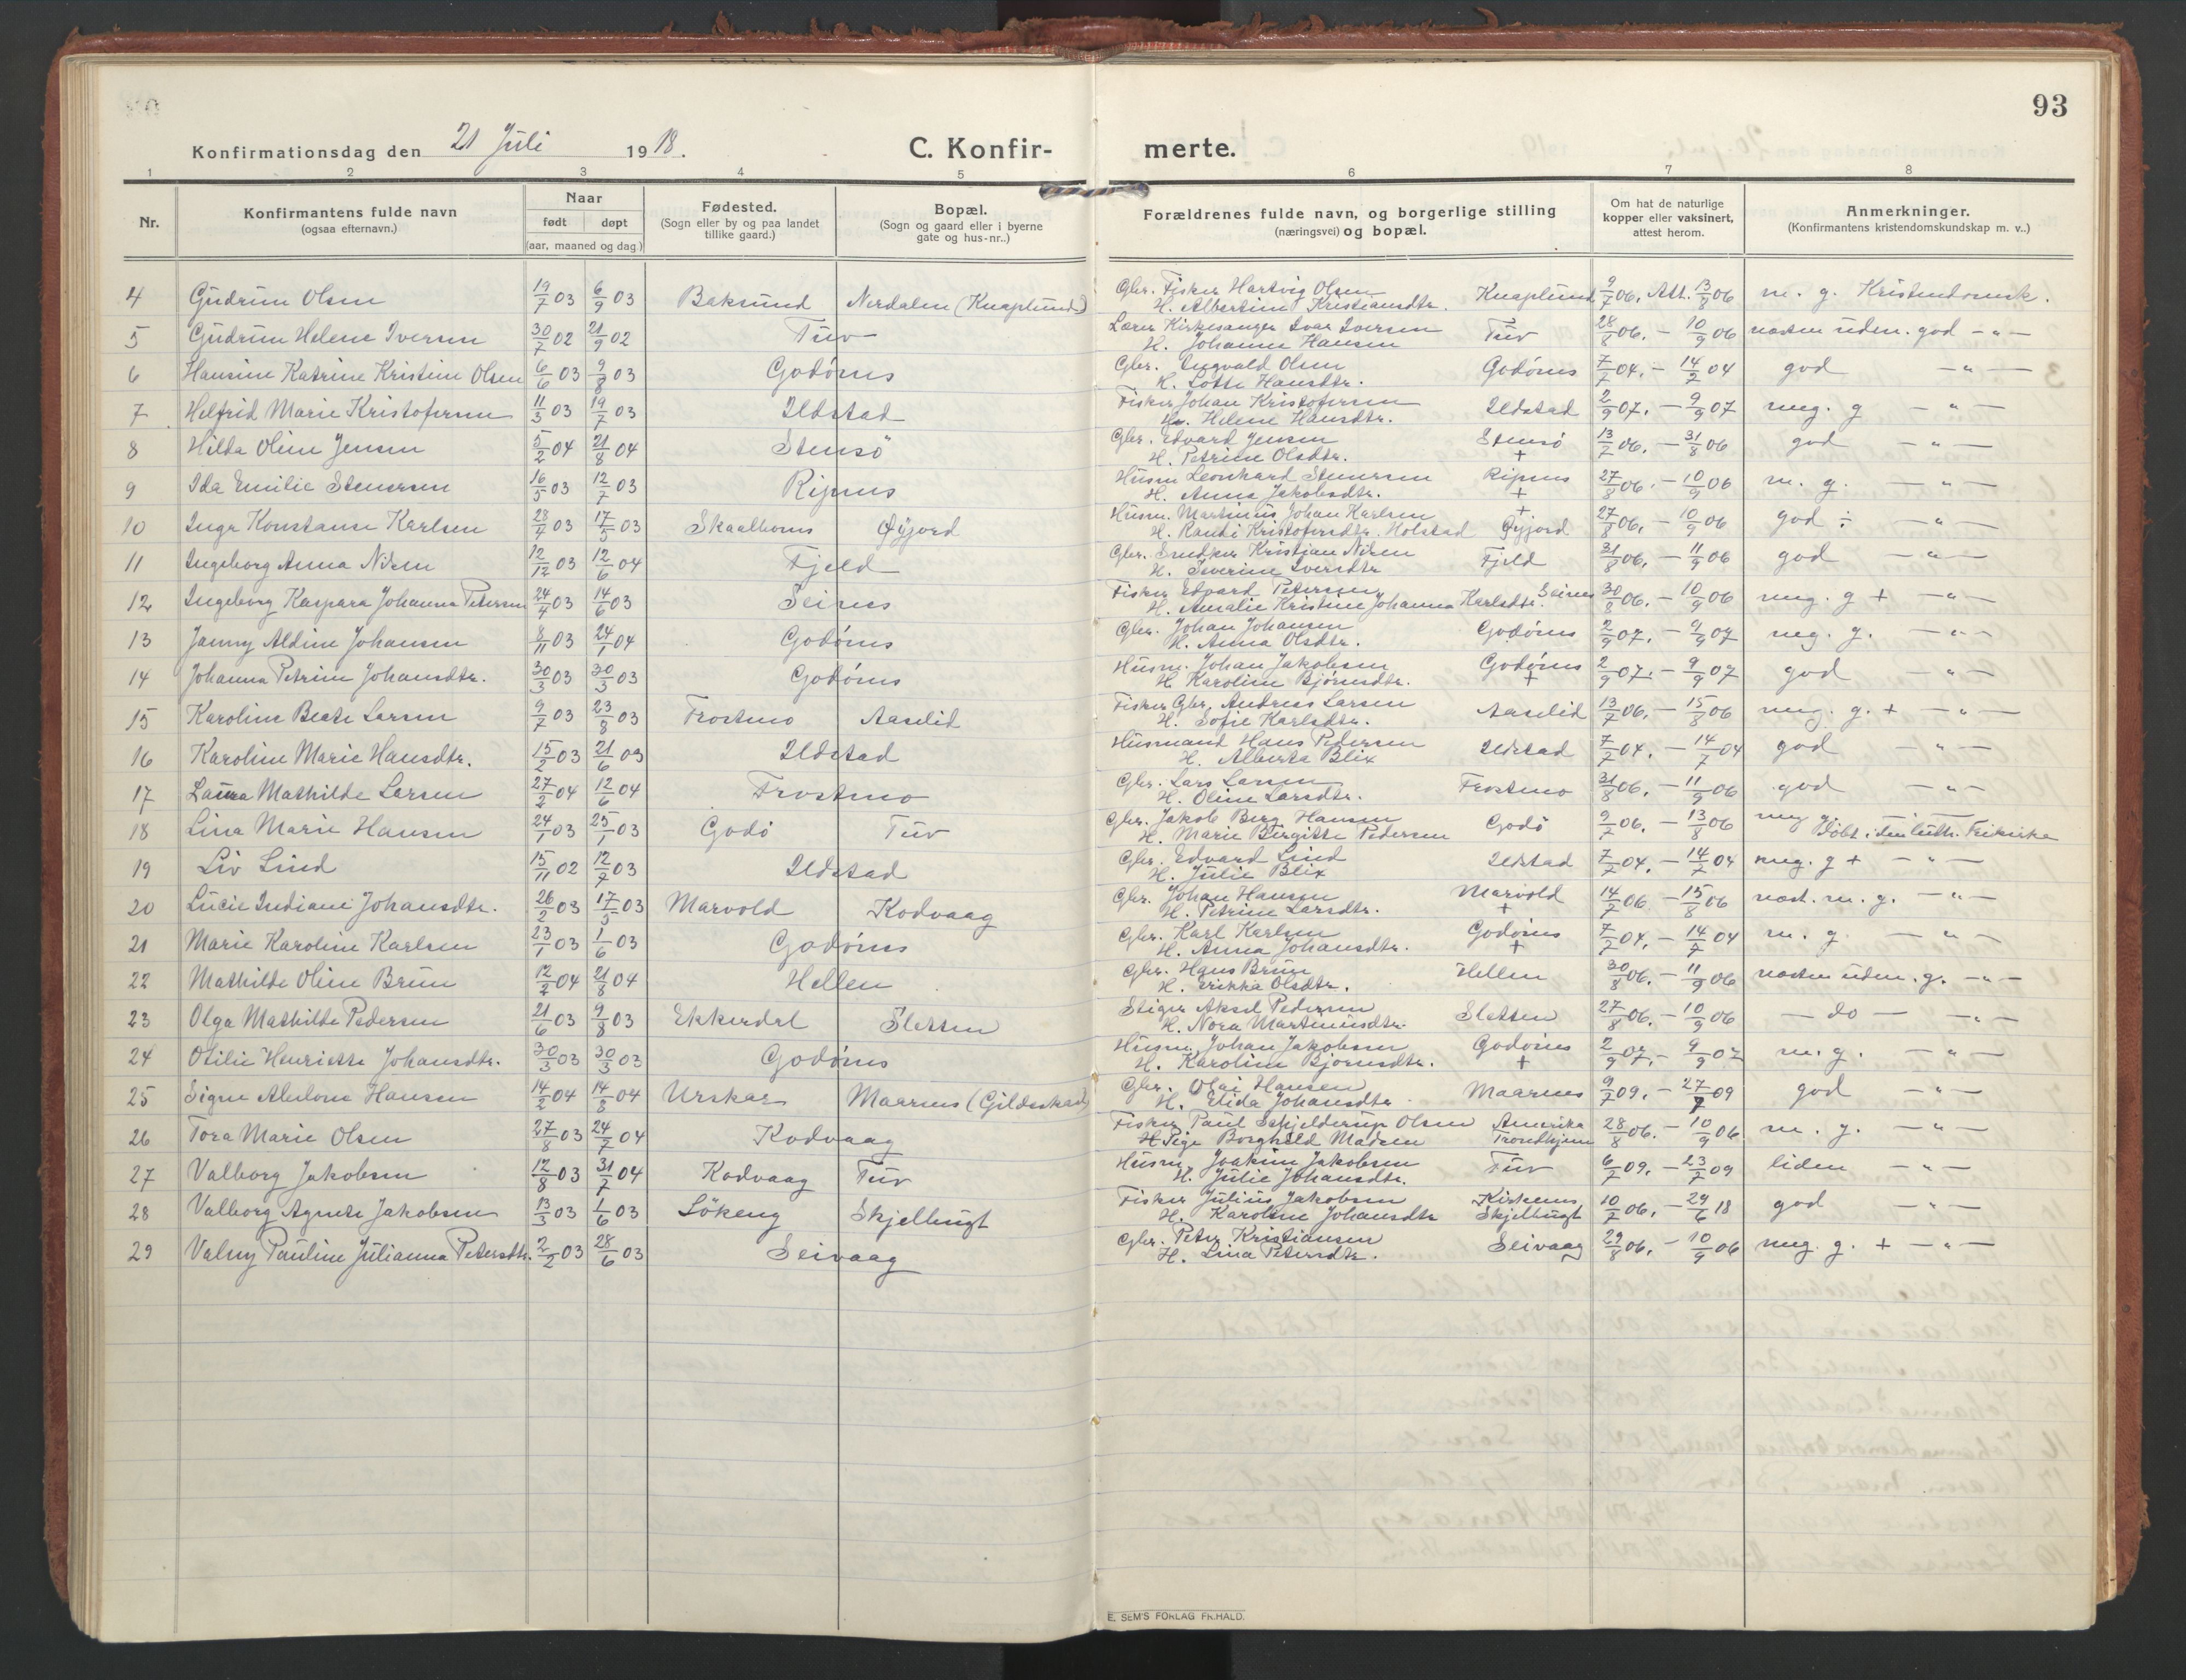 93
Konfirmationsdag den 21 Juli 1918.
C. Konfir-
merte.
1 2 3 4 5 6 7 8
Nr.
Konfirmantens fulde navn
(ogsaa efternavn.)
Naar
født døpt
(aar, maaned og dag)
Fødested.
(Sogn eller by og paa landet
tillike gaard.)
Bopæl.
(Sogn og gaard eller i byerne
gate og hus-nr..)
Forældrenes fulde navn, og borgerlige stilling
(næringsvei) og bopæl.
Om hat de naturlige
kopper eller vaksinert,
attest herom.
Anmerkninger.
(Konfirmantens kristendomskundskap m. v..)
4 Gudrun Olsen 19/7 03 6/9 03 Baksund Nerdalen (Knaplund) Gbr. Fisker Hartvig Olsen Knaplund 9/7 06. Att. 13/8 06 m. g. Kristendomsk.
H. Albertine Kristiansdtr.
5 Gudrun Helene Iversen 30/7 02 21/9 02 Tuv Lærer Kirkesanger Ivar Iversen Tuv 28/8 06. - 10/9 06 næsten uden. god - " -
H. Johanna Hansen
6 Hansine Katrine Kristine Olsen 6/6 03 9/8 03 Godønes Gbr. Ingvald Olsen Godønes 7/7 04. - 14/7 04 god - " -
H. Lotte Hansdtr.
7 Helfrid Marie Kristofersen 11/3 03 19/7 03 Ildstad Fisker Johan Kristofersen Ildstad 2/9 07. - 9/9 07 meg. g - " -
H. Helene Hansdtr.
8 Hilda Oline Jensen 5/2 04 21/8 04 Stensö Gbr. Edvard Jensen Stensö 13/7 06. - 31/8 06 god - " -
H. Petrine Olsdtr. +
9 Ida Emilie Stenersen 16/5 03 12/7 03 Ripnes Husm Leonhard Stenersen Ripnes 27/8 06. - 10/9 06 m. g. - " -
H. Anna Jakobsdtr. +
10 Inga Konstanse Karlsen 28/4 03 17/5 03 Skaalbones Øyjord Husm. Martinus Johan Karlsen + 27/8 06. - 10/9 06 god ÷ - " -
H. Randi Kristofersdtr. Holstad Øyjord
11 Ingeborg Anna Nilsen 12/12 03 12/6 04 Fjeld Gbr. Snedker Kristian Nilsen Fjeld 31/8 06. - 11/9 06 god - " -
H. Severine Iversdtr
12 Ingeborg Kaspara Johanna Petersen 24/4 03 14/6 03 Seines Fisker Edvard Petersen Seines 30/8 06. - 10/9 06 meg. g + - " -
H. Amalie Kristine Johanna Karlsdtr.
13 Janny Aldine Johansen 8/11 03 24/1 04 Godönes Gbr. Johan Johansen Godönes 2/9 07. - 9/9 07 meg. g. - " -
H. Anna Olsdtr.
14 Johanna Petrine Johansdtr. 30/3 03 30/3 03 Godönes Husm. Johan Jakobsen Godönes 2/9 07. - 9/9 07 god - " -
H Karoline Bjørnsdtr. +
15 Karoline Beate Larsen 9/7 03 23/8 03 Frostmo Aaselid Fisker Gbr. Andreas Larsen Aaselid 13/7 06. - 15/8 06 meg. g. + - " -
H. Sofie Karlsdtr.
16 Karoline Marie Hansdtr. 15/2 03 21/6 03 Ildstad Husmand Hans Pedersen Ildstad 7/7 04. - 14/7 04 god - " -
H. Alberta Blix
17 Laura Mathilde Larsen 27/2 04 12/6 04 Frostmo Gbr. Lars Larsen Frostmo 31/8 06. - 11/9 06 god - " -
H. Oline Larsdtr.
18 Lina Marie Hansen 24/1 03 25/1 03 Godö Tuv Gbr. Jakob Berg Hansen Godö 9/7 06. - 13/8 06 meg g. - " -
H. Marie Birgitte Pedersen Döbt i den luth. Frikirke
19 Liv Lind 15/11 02 12/7 03 Ildstad Gbr. Edvard Lind Ildstad 7/7 04. - 14/7 04 meg. g + - " -
H. Julie Blix
20 Lucie Indiane Johansdtr. 26/2 03 17/5 03 Marvold Kodvaag Gbr. Johan Hansen Marvold 14/7 06 - 15/8 06 næst. m. g. - " -
H. Petrine Larsdtr. +
21 Marie Karoline Karlsen 23/1 03 1/6 03 Godönes Gbr. Karl Karlsen Godönes 7/7 04. - 14/7 04 m. g. - " -
H. Anna Johansdtr. +
22 Mathilde Oline Brun 12/2 04 21/8 04 Hellen Gbr. Hans Brun Hellen 30/8 06. - 11/9 06 næsten uden. g. - " -
H. Erikka Olsdtr.
23 Olga Mathilde Pedersen 21/6 03 9/8 03 Ekkerdal Sletten Stiger Aksel Pedersen Sletten 27/8 06. - 10/9 06 - do - - " -
H. Nora Martinusdtr.
24 Otilie Henriette Johansdtr. 30/3 03 30/3 03 Godönes Husm. Johan Jakobsen Godönes 2/9 07. - 9/9 07 m. g. - " -
H. Karoline Bjørnsdtr. +
25 Signe Abelone Hansen 14/2 04 14/8 04 Urskar Maarnes (Gildeskaal) Gbr. Olai Hansen Maarnes 9/7 09. - 27/7 09 god - " -
H. Elida Johansdtr
26 Tora Marie Olsen 27/8 03 24/7 04 Kodvaag Fisker Paul Schjelderup Olsen Amerika 28/8 06. - 10/9 06 m. g. - " -
Pige Borghild Madsen Trondhjem
27 Valborg Jakobsen 12/8 03 31/7 04 Kodvaag Tuv Husm. Joakim Jakobsen Tuv 6/7 09. - 23/7 09 liden - " -
H. Julie Johansdtr.
28 Valborg Agnete Jakobsen 13/3 03 1/6 03 Lökeng Skjelbugt Fisker Julius Jakobsen Kirkenes 10/7 06. - 29/6 18 god - " -
H. Karoline Johansdtr Skjelbugt
29 Valny Pauline Julianna Petersdtr. 2/2 03 28/6 03 Seivaag Gbr. Peter Kristiansen Seivaag 29/8 06. - 10/9 06 meg. g. + - " -
H. Lina Petersdtr.
E. SEM'S FORLAG FR.HALD.